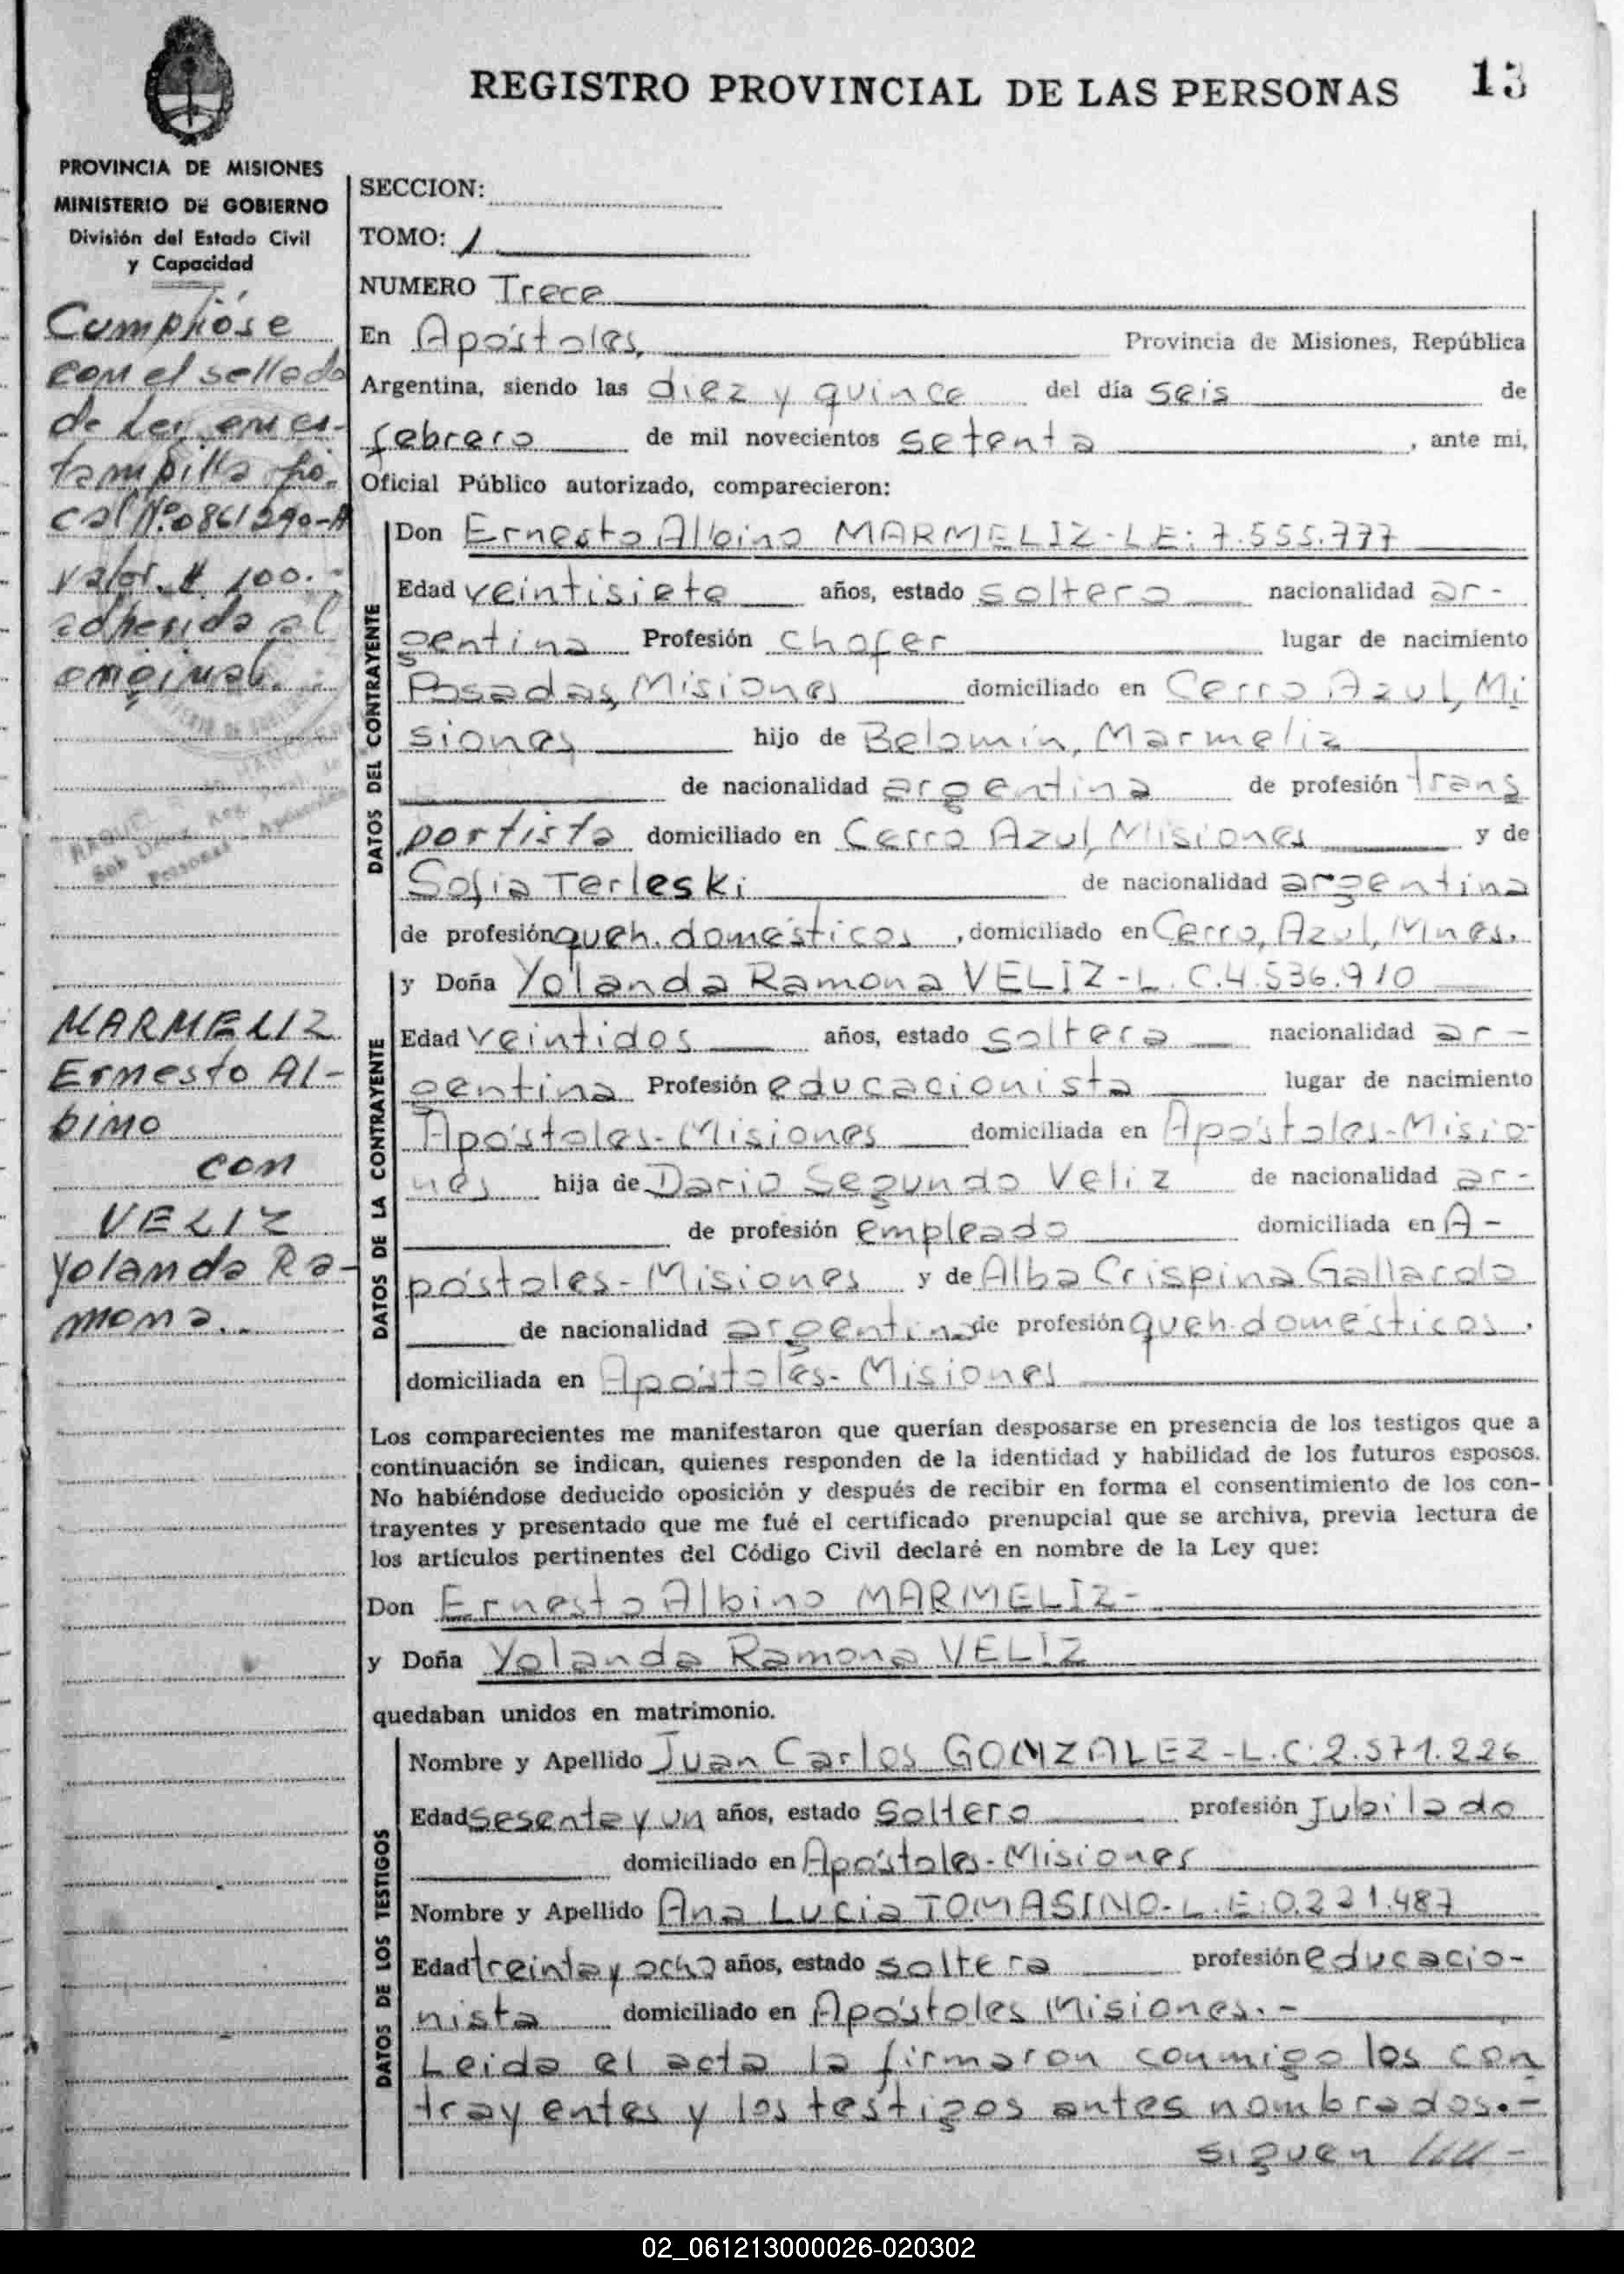 REGISTRO PROVINCIAL DE LAS PERSONAS 13
PROVINCIA DE MISIONES
MINISTERIO DE GOBIERNO
División del Estado Civil
y Capacidad
Cumplióse
con el sellado
de Ley en es-
tampilla fis-
cal Nº 0861290-A
valor $ 100.-
adherida al
original.
MARMELIZ
Ernesto Al-
bino
con
VELIZ
Yolanda Ra-
mona.
SECCION:
TOMO: 1
NUMERO Trece
En Apóstoles, Provincia de Misiones, República
Argentina, siendo las diez y quince del día seis de
febrero de mil novecientos setenta, ante mi,
Oficial Público autorizado, comparecieron:
DATOS DEL CONTRAYENTE
Don Ernesto Albino MARMELIZ-LE: 7.555.777
Edad veintisiete años, estado soltero nacionalidad ar-
gentina Profesión chofer lugar de nacimiento
Posadas, Misiones domiciliado en Cerro Azul, Mi
siones hijo de Belomin, Marmeliz
de nacionalidad argentina de profesión trans
portista domiciliado en Cerro Azul, Misiones y de
Sofia Terleski de nacionalidad argentina
de profesión queh. domésticos, domiciliado en Cerro, Azul, Mnes.
DATOS DE LA CONTRAYENTE
y Doña Yolanda Ramona VELIZ-L. C.4.536.910
Edad veintidos años, estado soltera nacionalidad ar-
gentina Profesión educacionista lugar de nacimiento
Apóstoles-Misiones domiciliada en Apóstoles-Misio-
nes hija de Dario Segundo Veliz de nacionalidad ar-
de profesión empleado domiciliada en A-
póstoles-Misiones y de Alba Crispina Gallardo
de nacionalidad argentina de profesión queh. domésticos.
domiciliada en Apóstoles-Misiones
Los comparecientes me manifestaron que querían desposarse en presencia de los testigos que a
continuación se indican, quienes responden de la identidad y habilidad de los futuros esposos.
No habiéndose deducido oposición y después de recibir en forma el consentimiento de los con-
trayentes y presentado que me fué el certificado prenupcial que se archiva, previa lectura de
los artículos pertinentes del Código Civil declaré en nombre de la Ley que:
Don Ernesto Albino MARMELIZ-
y Doña Yolanda Ramona VELIZ
quedaban unidos en matrimonio.
DATOS DE LOS TESTIGOS
Nombre y Apellido Juan Carlos GONZALEZ-L.C:2.571.226
Edad sesenta y un años, estado Soltero profesión Jubilado
domiciliado en Apóstoles-Misiones
Nombre y Apellido Ana Lucia TOMASINO-L.E:0.221.487
Edad treinta y ocho años, estado soltera profesión educacio-
nista domiciliado en Apóstoles Misiones.-
Leida el acta la firmaron conmigo los con
trayentes y los testigos antes nombrados.-
siguen ////-
02_061213000026-020302